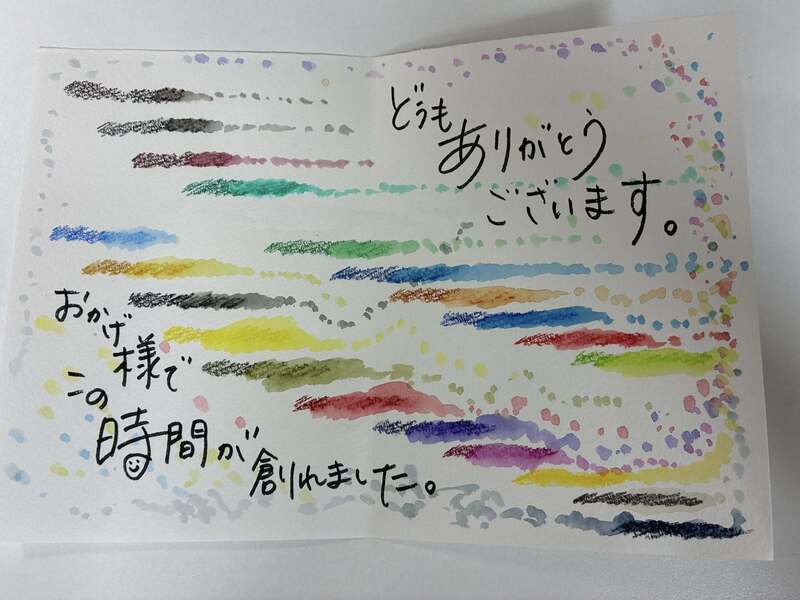 どうも
ありがとう
ございます。
おかげ
様で
この
時間が
創れました。